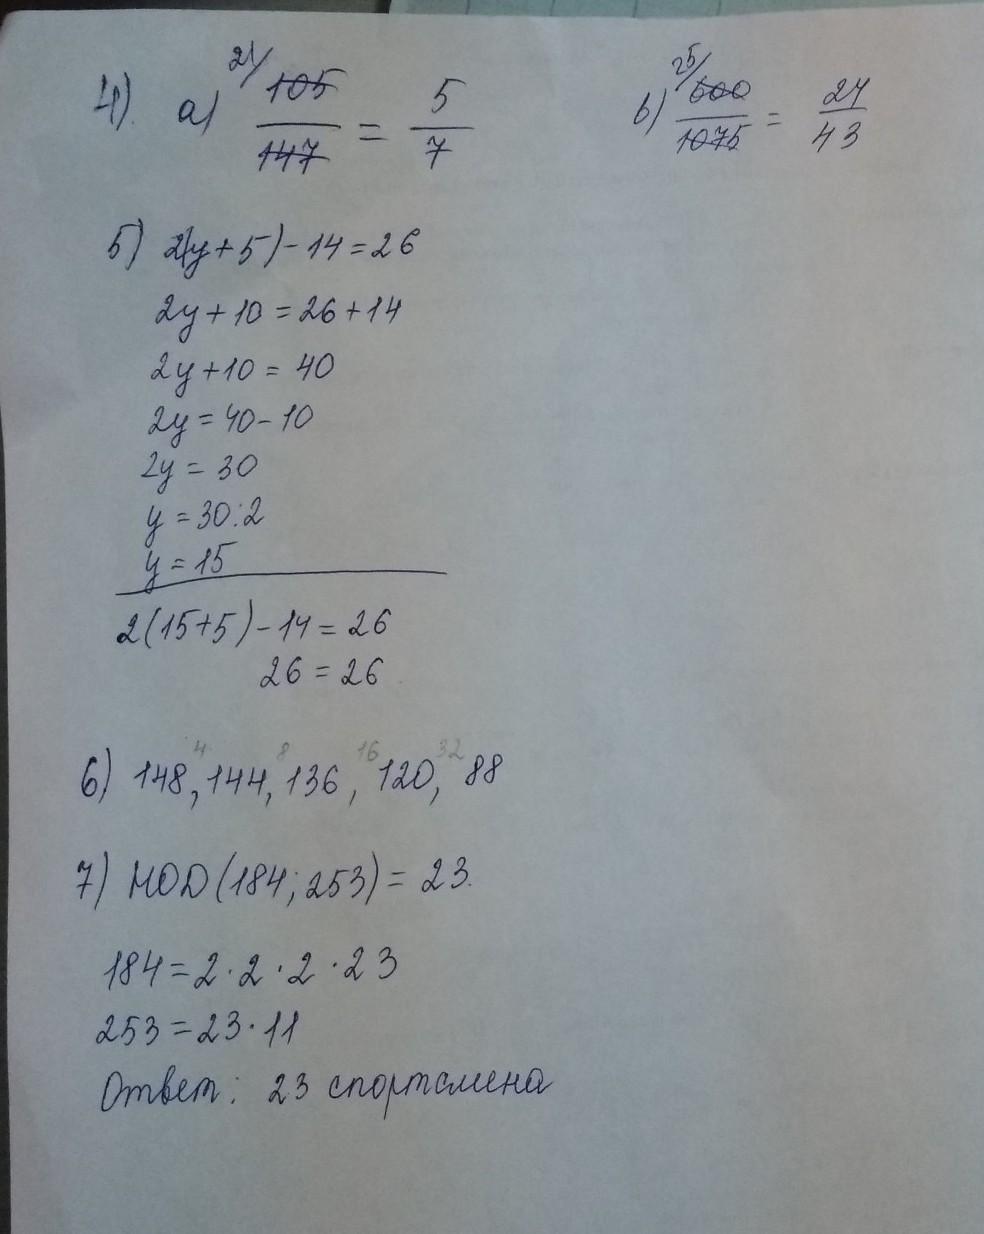 4). а) 21/ 105/147 = 5/7 в) 25/ 600/1075 = 24/43
5) 2(y+5)-14=26
2y+10=26+14
2y+10=40
2y=40-10
2y=30
y=30:2
y=15
2(15+5)-14=26
26=26
4 8 16 32
6) 148, 144, 136, 120, 88
7) НОД(184; 253)=23.
184=2·2·2·23
253=23·11
Ответ: 23 спортсмена